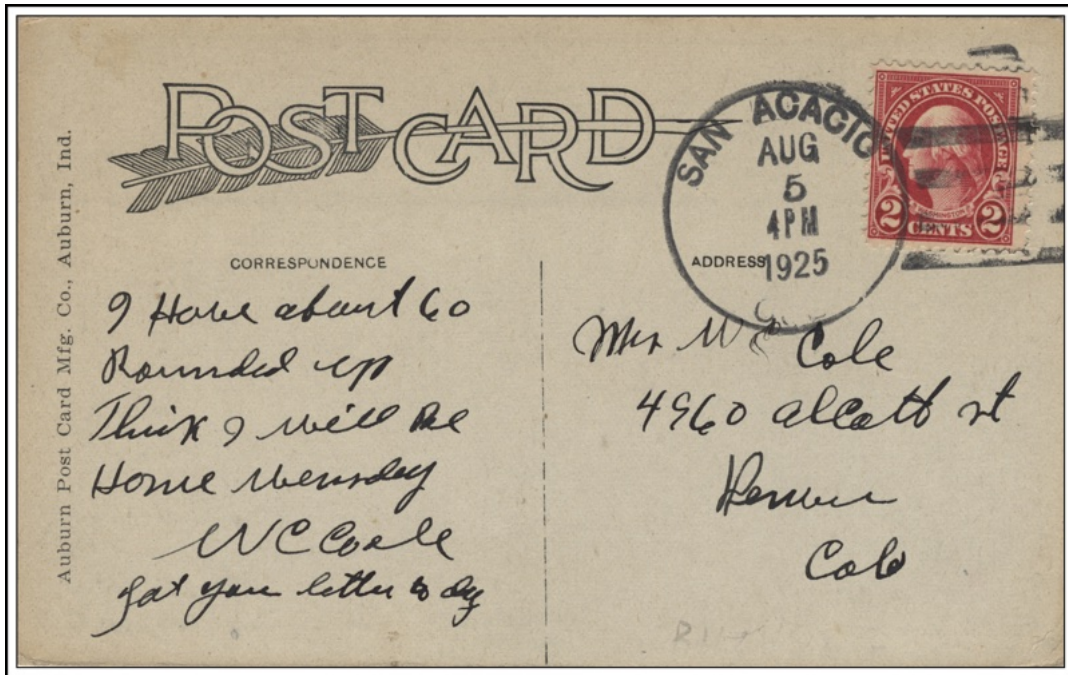 POST CARD
Auburn Post Card Mfg. Co., Auburn, Ind.
SAN ACACIO
AUG
5
4 PM
1925
UNITED STATES POSTAGE
WASHINGTON
2 CENTS 2
CORRESPONDENCE
ADDRESS
I Have about 60
Rounded up
Think I will Be
Home Wensday
W C Coale
got your letter to day
Mrs W C Cole
4960 Alcott st
Denver
Colo